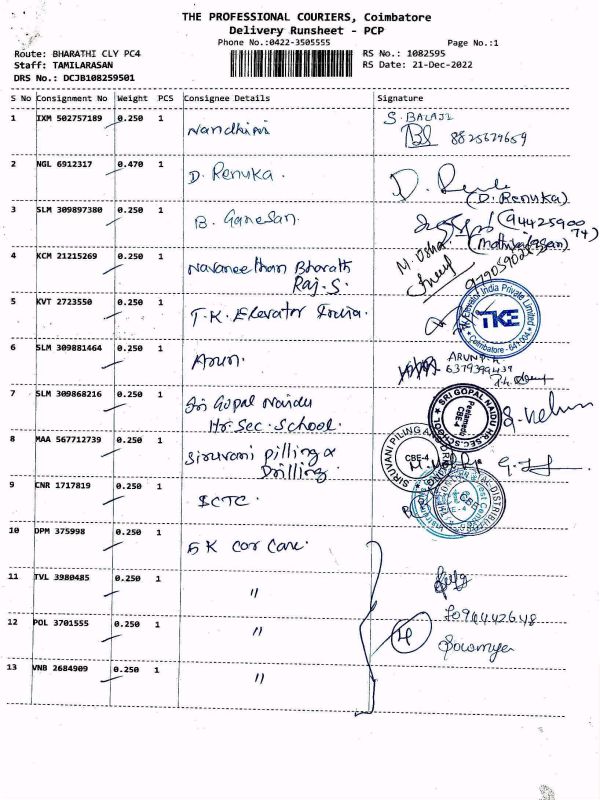 THE PROFESSIONAL COURIERS, Coimbatore
Delivery Runsheet - PCP
Phone No.:0422-3505555
Page No.:1
Route: BHARATHI CLY PC4
RS No.: 1082595
Staff: TAMILARASAN
RS Date: 21-Dec-2022
DRS No.: DCJB108259501
S No Consignment No Weight PCS Consignee Details Signature
1 IXM 502757189 0.250 1 Nandhini S. BALAJI
8825679659
2 NGL 6912317 0.470 1 D. Renuka.
(D. Renuka)
3 SLM 309897380 0.250 1 B. Ganesan.
(94425900
74)
4 KCM 21215269 0.250 1 Navaneethan Bharath
Raj. S.
M. Usha
5 KVT 2723550 0.250 1 T.K. Elevator India.
TKE
6 SLM 309881464 0.250 1 Arun.
7 SLM 309868216 0.250 1 Sri Gopal Naidu
Hr. Sec. School.
SRI GOPAL NAIDU HR. SEC. SCHOOL
Peelamedu
CBE-4
8 MAA 567712739 0.250 1 Siruvani pilling &
Drilling.
CBE-4
9 CNR 1717819 0.250 1 SCTC.
10 DPM 375998 0.250 1 5 K Car Care.
11 TVL 3980485 0.250 1 "
12 POL 3701555 0.250 1 " 4
Sowmya
13 VNB 2684909 0.250 1 "